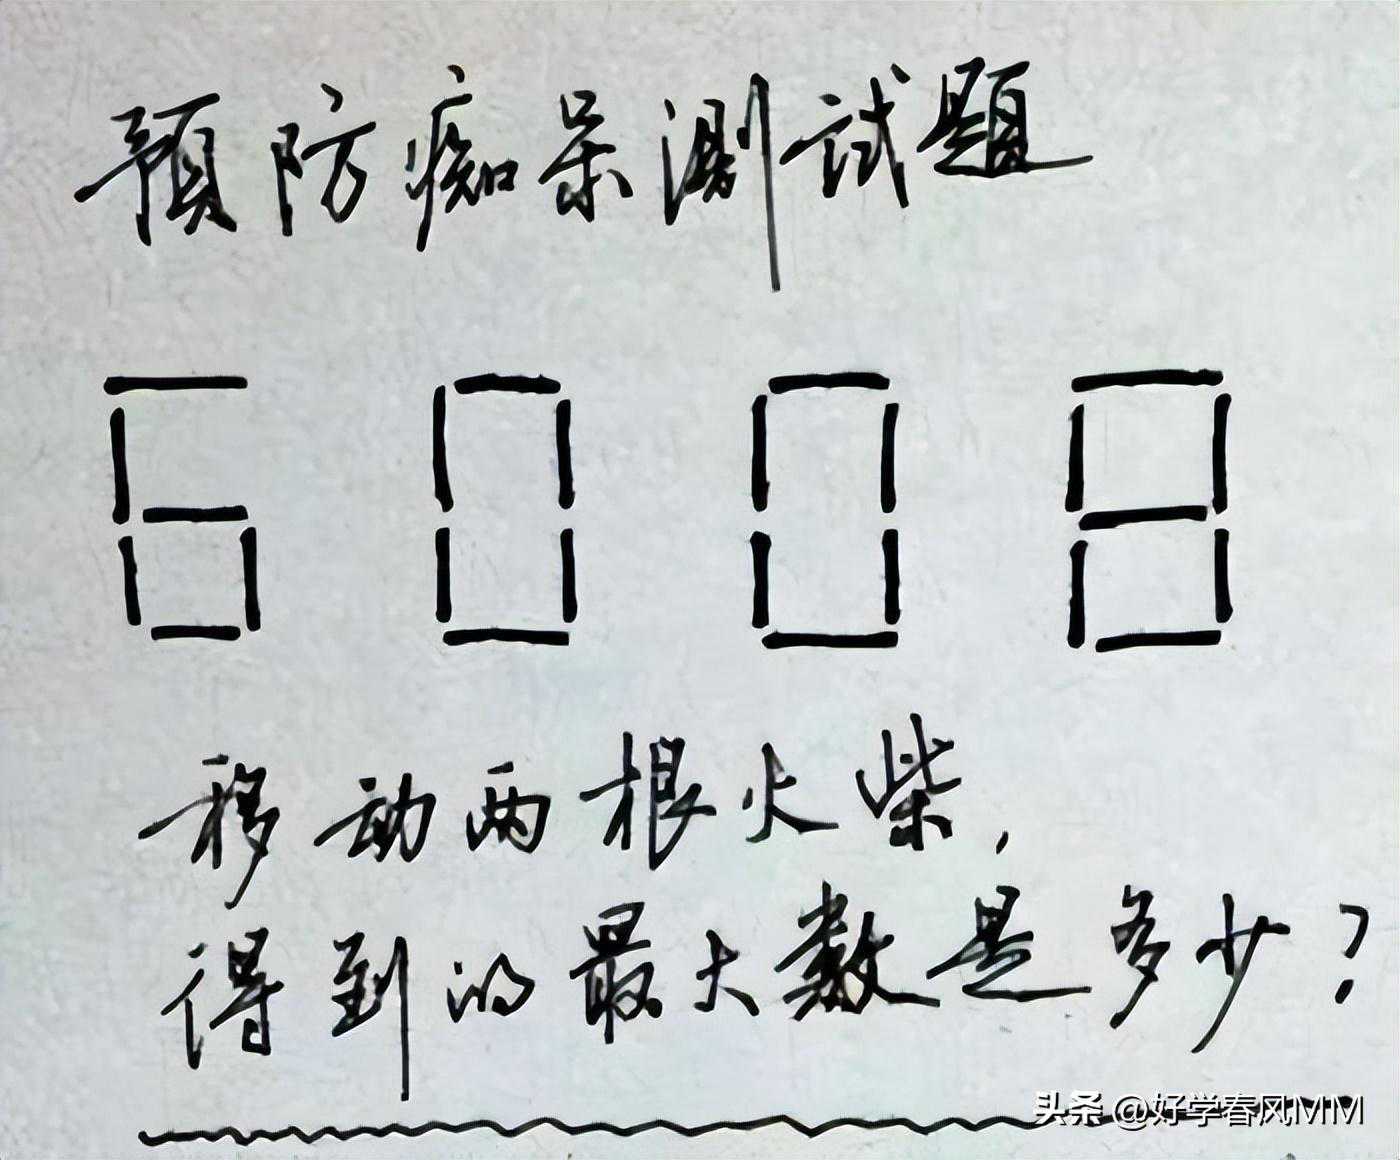 预防痴呆测试题
6008
移动两根火柴,
得到的最大数是多少?
头条 @好学春风MM